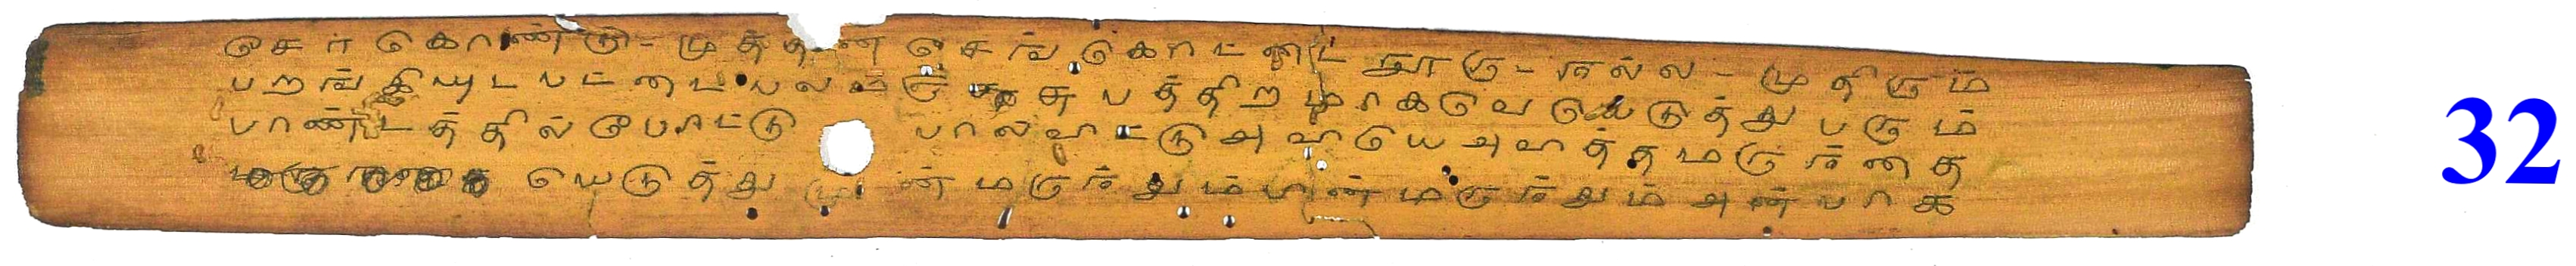 சேர் கொண்டு - முத்தின சேங்கொட்டை நூரு - நல்ல - முதிரும்
பறங்கியுட பட்டை பல பத்திறமாகவெ யெடுத்து பரும்
பாண்டத்தில் போட்டு பால விட்டு அவியெ அவித்த மருந்தை
யெடுத்து முன் மருந்தும் பின் மருந்தும் அன்பாக
32